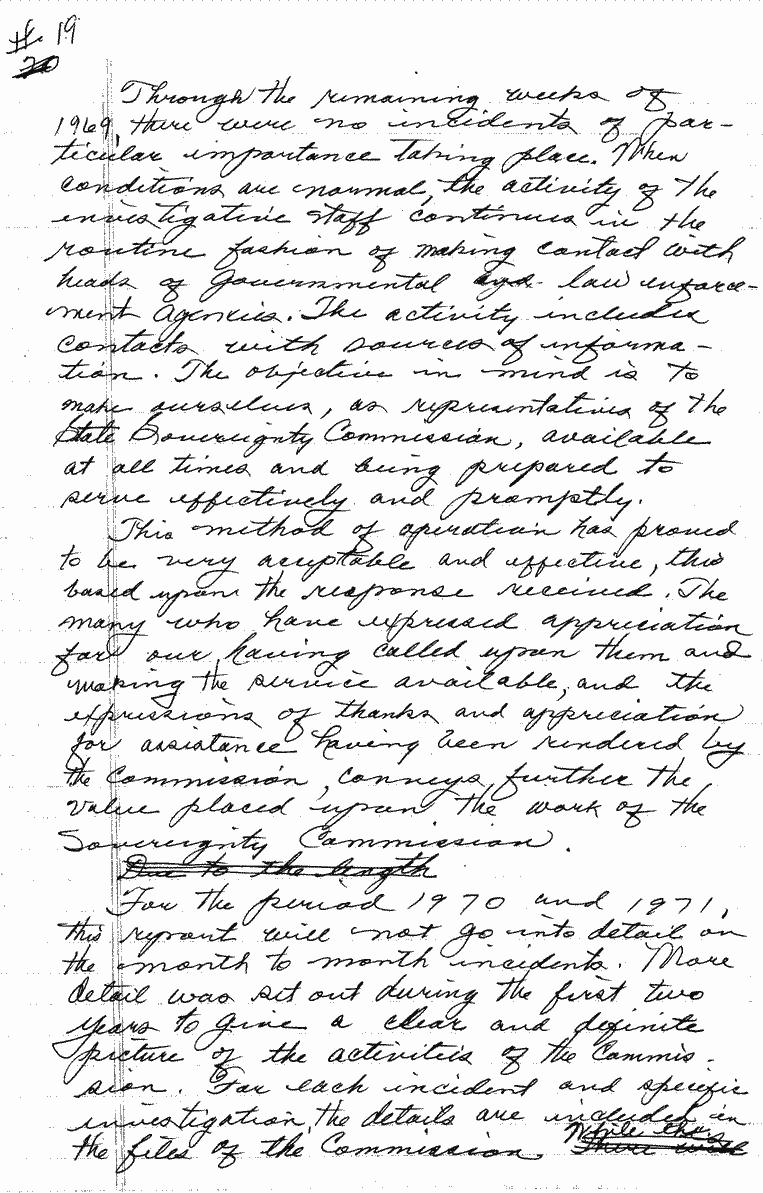 #. 19
20
Through the remaining weeks of
1969, there were no incidents of par-
ticular importance taking place. When
conditions are normal, the activity of the
investigative staff continues in the
routine fashion of making contact with
heads of Governmental and law enforce-
ment agencies. The activity includes
contacts with sources of informa-
tion. The objective in mind is to
make ourselves, as representatives of the
State Sovereignty Commission, available
at all times and being prepared to
serve effectively and promptly.
This method of operation has proved
to be very acceptable and effective, this
based upon the response received. The
many who have expressed appreciation
for our having called upon them and
making the service available, and the
expressions of thanks and appreciation
for assistance having been rendered by
the Commission, conveys further the
value placed upon the work of the
Sovereignty Commission.
Due to the length
For the period 1970 and 1971,
this report will not go into detail on
the month to month incidents. More
detail was set out during the first two
years to give a clear and definite
picture of the activities of the Commis-
sion. For each incident and specific
investigation, the details are included in
the files of the Commission. While this
There will